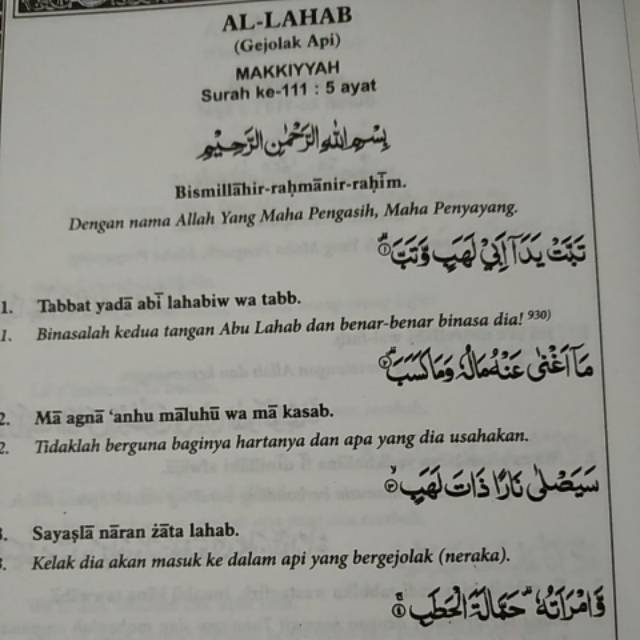 AL-LAHAB
(Gejolak Api)
MAKKIYYAH
Surah ke-111 : 5 ayat
بِسْمِ اللهِ الرَّحْمٰنِ الرَّحِيْمِ
Bismillāhir-raḥmānir-raḥīm.
Dengan nama Allah Yang Maha Pengasih, Maha Penyayang.
تَبَّتْ يَدَآ اَبِيْ لَهَبٍ وَّتَبَّۗ ①
1. Tabbat yadā abī lahabiw wa tabb.
1. Binasalah kedua tangan Abu Lahab dan benar-benar binasa dia! 930)
مَآ اَغْنٰى عَنْهُ مَالُهٗ وَمَا كَسَبَۗ ②
2. Mā agnā ‘anhu māluhū wa mā kasab.
2. Tidaklah berguna baginya hartanya dan apa yang dia usahakan.
سَيَصْلٰى نَارًا ذَاتَ لَهَبٍۙ ③
3. Sayaṣlā nāran żāta lahab.
3. Kelak dia akan masuk ke dalam api yang bergejolak (neraka).
وَّامْرَاَتُهٗ ۗحَمَّالَةَ الْحَطَبِۚ ④